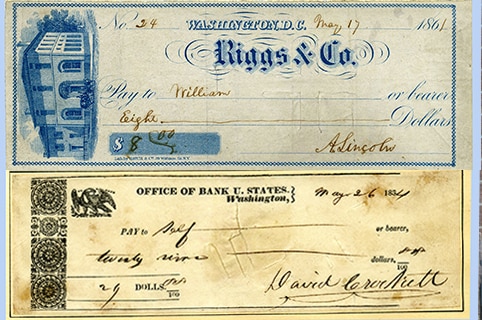 No. 24 WASHINGTON, D.C. May 17 1861
Riggs & Co.
Pay to William or bearer
Eight Dollars
$ 8 00
A. Lincoln
OFFICE OF BANK U. STATES.
Washington, May 26 1834
PAY to Self or bearer,
twenty nine dollars, 100
29 DOLLS. 100
David Crockett